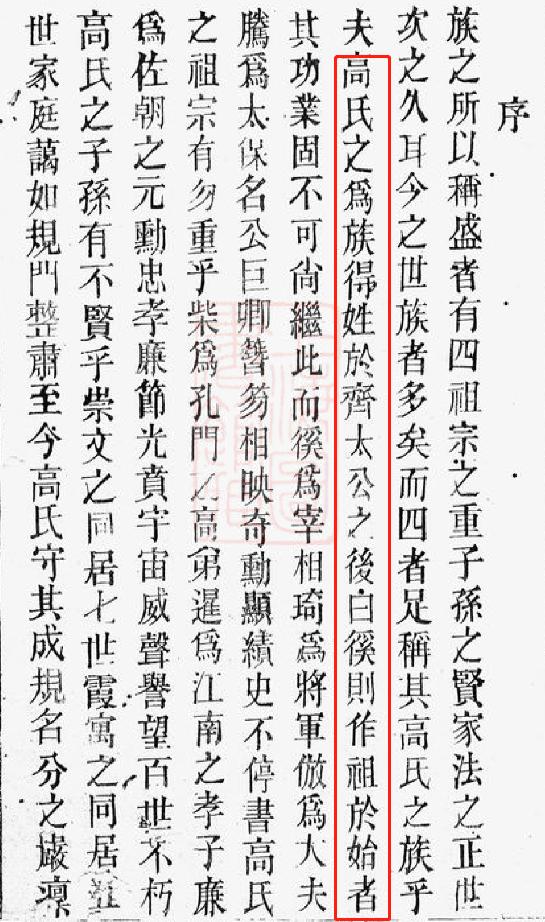 序
族之所以稱盛者有四祖宗之重子孫之賢家法之正世
次之久耳今之世族者多矣而四者足稱其高氏之族乎
夫高氏之為族得姓於齊太公之後白徯則作祖於始者
其功業固不可尚繼此而徯為宰相琦為將軍傲為大夫
騰為太保名公巨卿簪笏相映奇勳顯績史不停書高氏
之祖宗有勿重乎柴為孔門之高弟暹為江南之孝子廉
為佐朝之元勳忠孝廉節光賁宇宙威聲譽望百世不朽
高氏之子孫有不賢乎崇文之同居七世霞寓之同居五
世家庭藹如規門整肅至今高氏守其成規名分之嚴凛